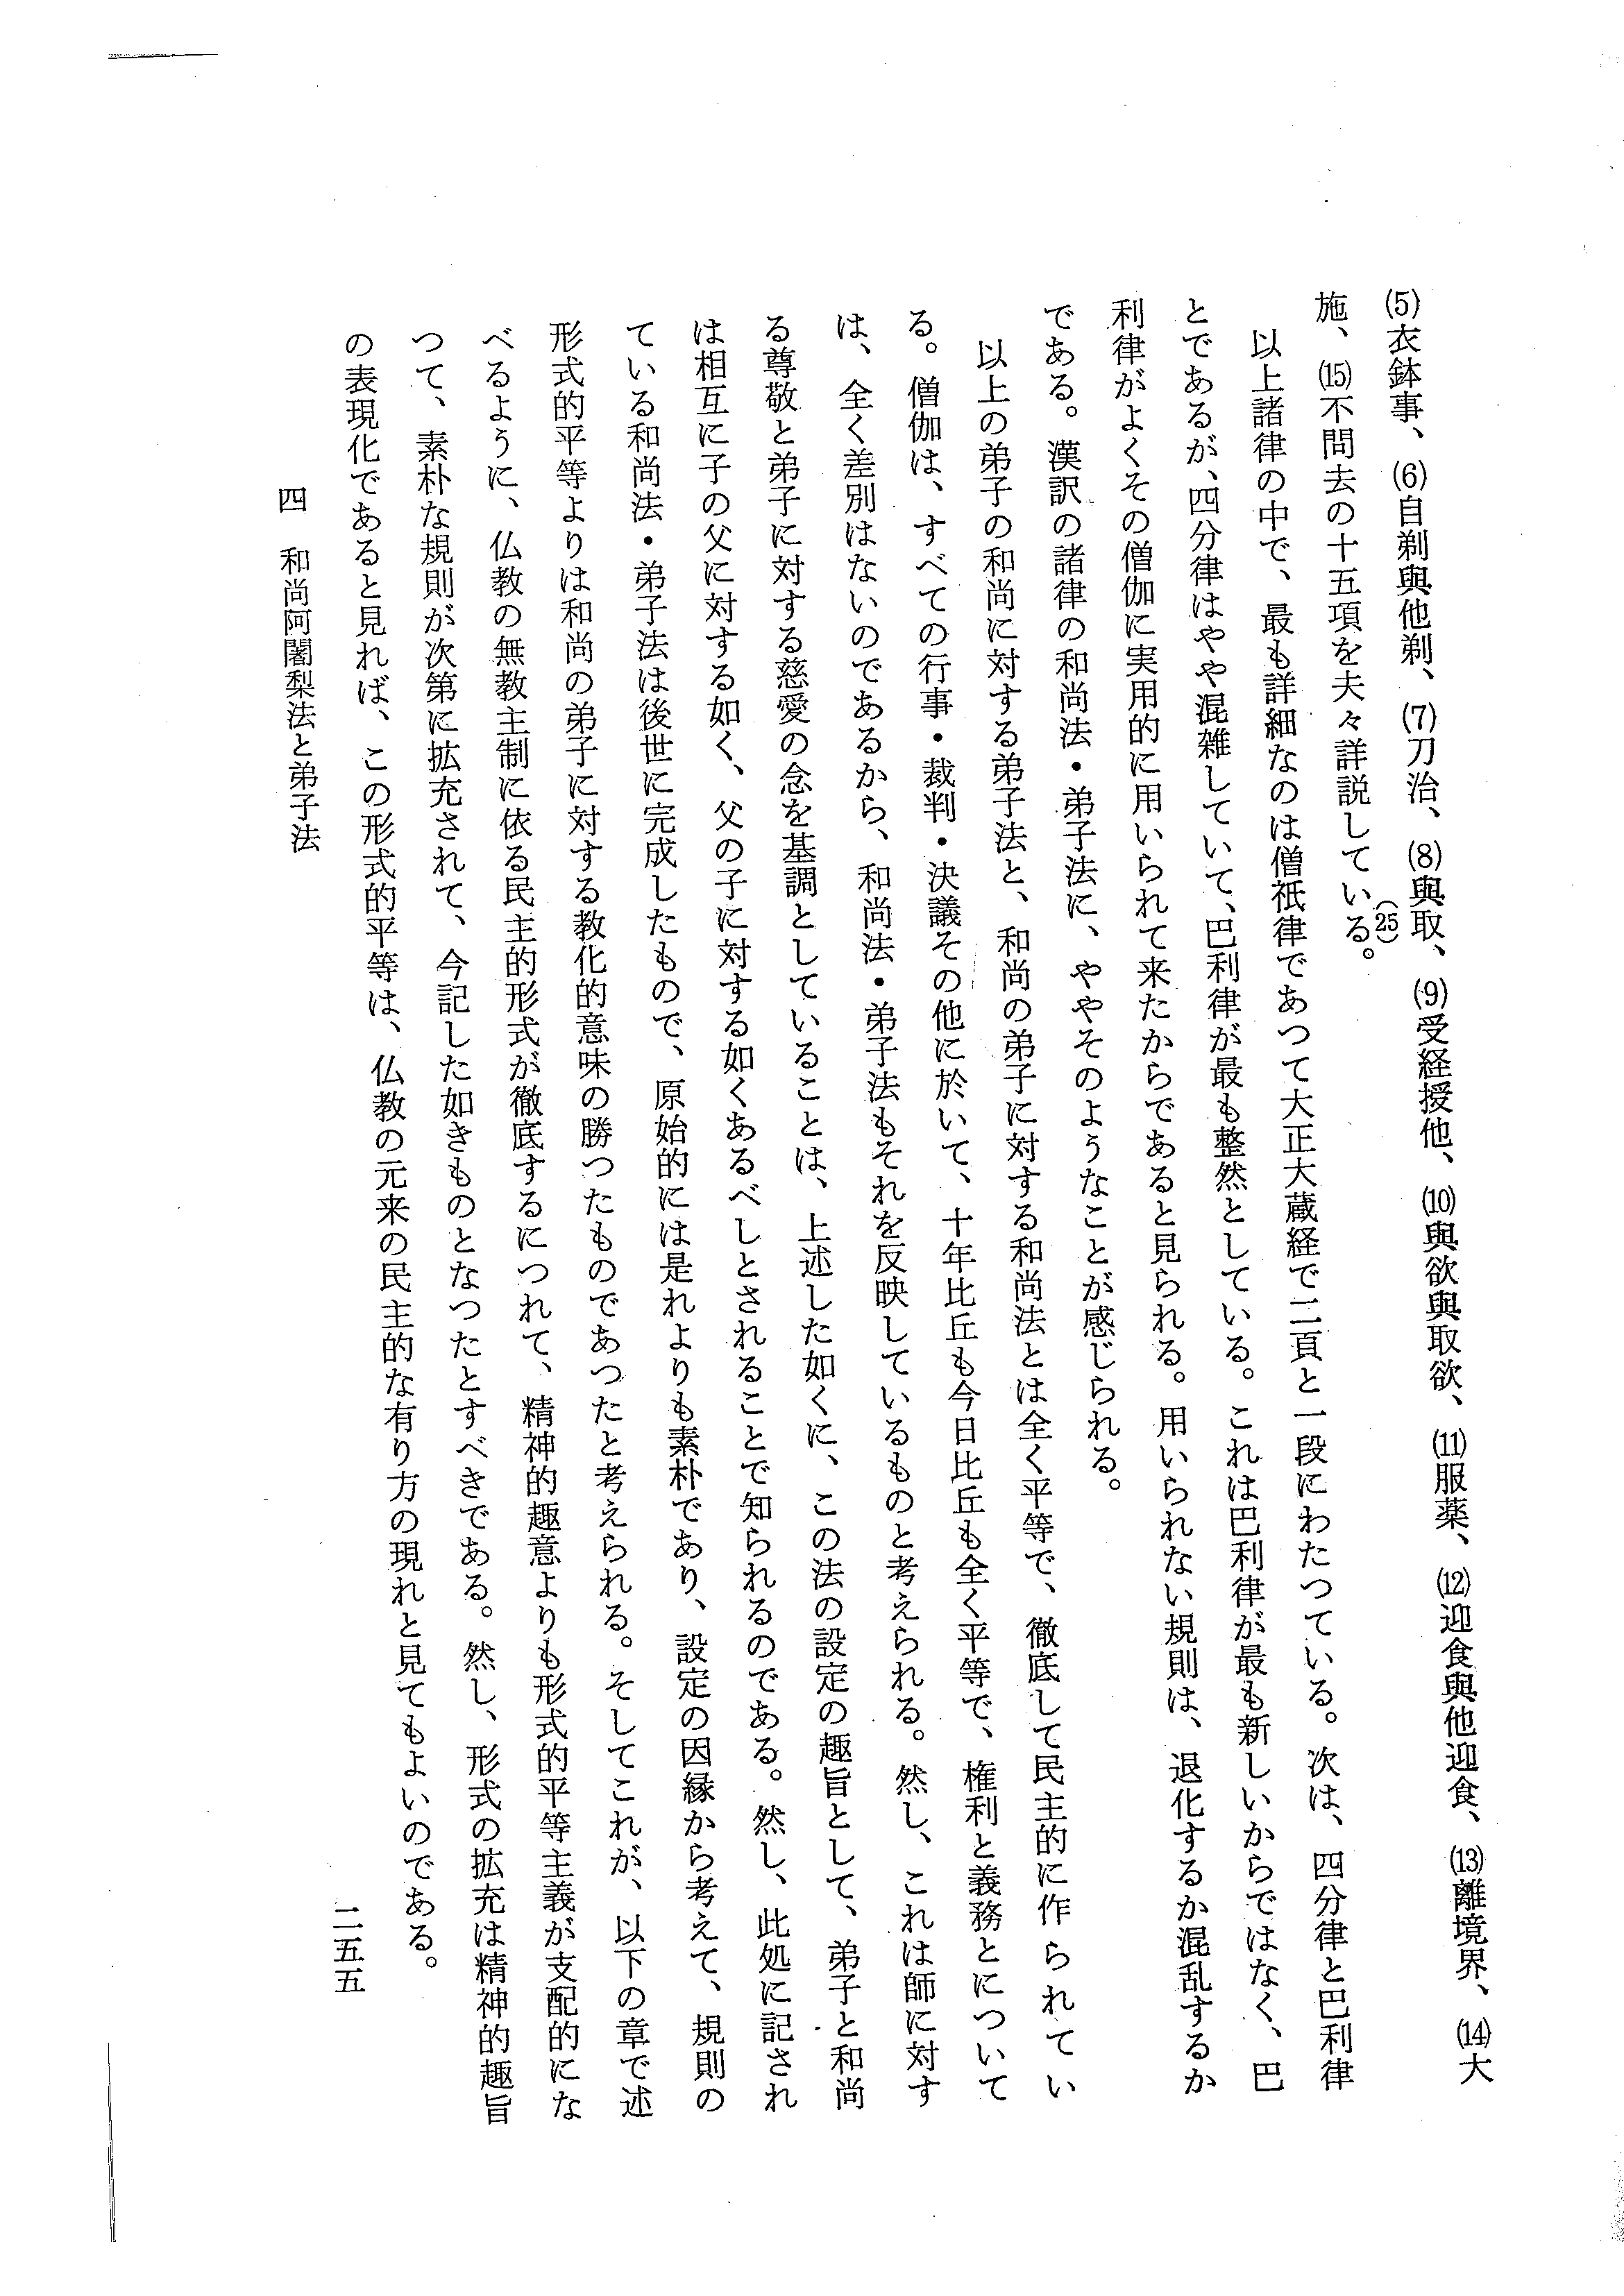 (5)衣鉢事、(6)自剃與他剃、(7)刀治、(8)與取、(9)受経授他、(10)與欲與取欲、(11)服薬、(12)迎食與他迎食、(13)離境界、(14)大
施、(15)不問去の十五項を夫々詳説している。(25)
以上諸律の中で、最も詳細なのは僧祇律であつて大正大蔵経で二頁と一段にわたつている。次は、四分律と巴利律
とであるが、四分律はやや混雑していて、巴利律が最も整然としている。これは巴利律が最も新しいからではなく、巴
利律がよくその僧伽に実用的に用いられて来たからであると見られる。用いられない規則は、退化するか混乱するか
である。漢訳の諸律の和尚法・弟子法に、ややそのようなことが感じられる。
以上の弟子の和尚に対する弟子法と、和尚の弟子に対する和尚法とは全く平等で、徹底して民主的に作られてい
る。僧伽は、すべての行事・裁判・決議その他に於いて、十年比丘も今日比丘も全く平等で、権利と義務とについて
は、全く差別はないのであるから、和尚法・弟子法もそれを反映しているものと考えられる。然し、これは師に対す
る尊敬と弟子に対する慈愛の念を基調としていることは、上述した如くに、この法の設定の趣旨として、弟子と和尚
は相互に子の父に対する如く、父の子に対する如くあるべしとされることで知られるのである。然し、此処に記され
ている和尚法・弟子法は後世に完成したもので、原始的には是れよりも素朴であり、設定の因縁から考えて、規則の
形式的平等よりは和尚の弟子に対する教化的意味の勝つたものであつたと考えられる。そしてこれが、以下の章で述
べるように、仏教の無教主制に依る民主的形式が徹底するにつれて、精神的趣意よりも形式的平等主義が支配的にな
つて、素朴な規則が次第に拡充されて、今記した如きものとなつたとすべきである。然し、形式の拡充は精神的趣旨
の表現化であると見れば、この形式的平等は、仏教の元来の民主的な有り方の現れと見てもよいのである。
四　和尚阿闍梨法と弟子法
二五五